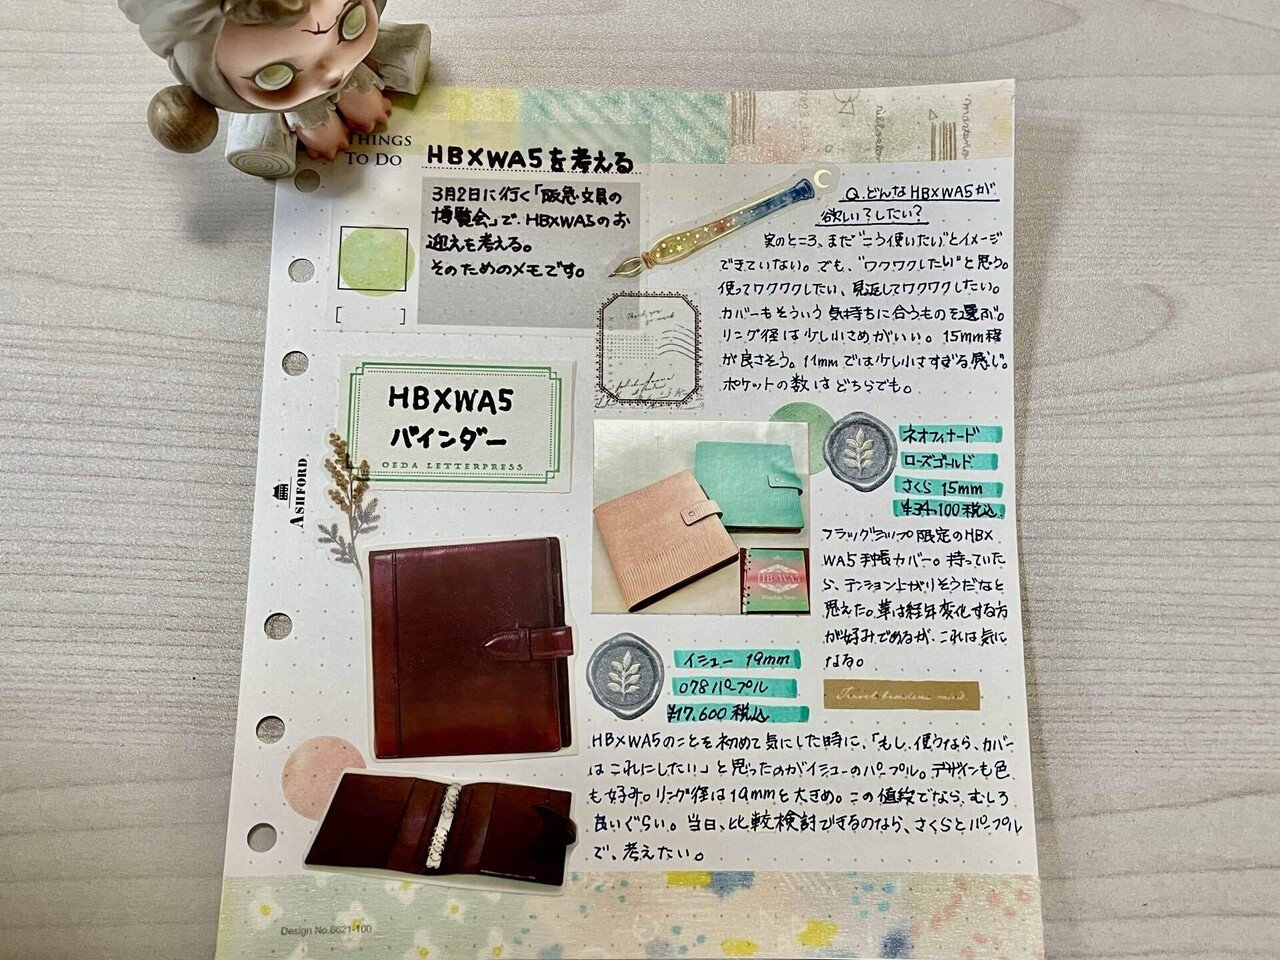 THINGS
TO DO
HBXWA5を考える
3月2日に行く「阪急文具の
博覧会」で、HBXWA5のお
迎えを考える。
そのためのメモです。
[ ]
Q.どんなHBXWA5が
欲しい?したい?
実のところ、まだ"こう使いたい"とイメージ
できていない。でも、"ワクワクしたい"と思う。
使ってワクワクしたい、見返してワクワクしたい。
カバーもそういう気持ちに合うものを選ぶ。
リング径は少し小さめがいい。15mm程
が良さそう。11mmでは少し小さすぎる感じ。
ポケットの数はどちらでも。
HBXWA5
バインダー
OEDA LETTERPRESS
ASHFORD
HB×WA5
ネオフィナード
ローズゴールド
さくら 15mm
¥34,100税込
フラッグシップ限定のHBX
WA5手帳カバー。持っていた
ら、テンション上がりそうだなと
思えた。革は経年変化する方
が好みであるが、これは気に
なる。
Travel broadens mind
イシュー 19mm
078パープル
¥17,600税込
HBXWA5のことを初めて気にした時に、「もし、使うなら、カバー
はこれにしたい」と思ったのがイシューのパープル。デザインも色
も好み。リング径は19mmと大きめ。この値段でなら、むしろ
良いぐらい。当日、比較検討できるのなら、さくらとパープル
で、考えたい。
Design No.6621-100